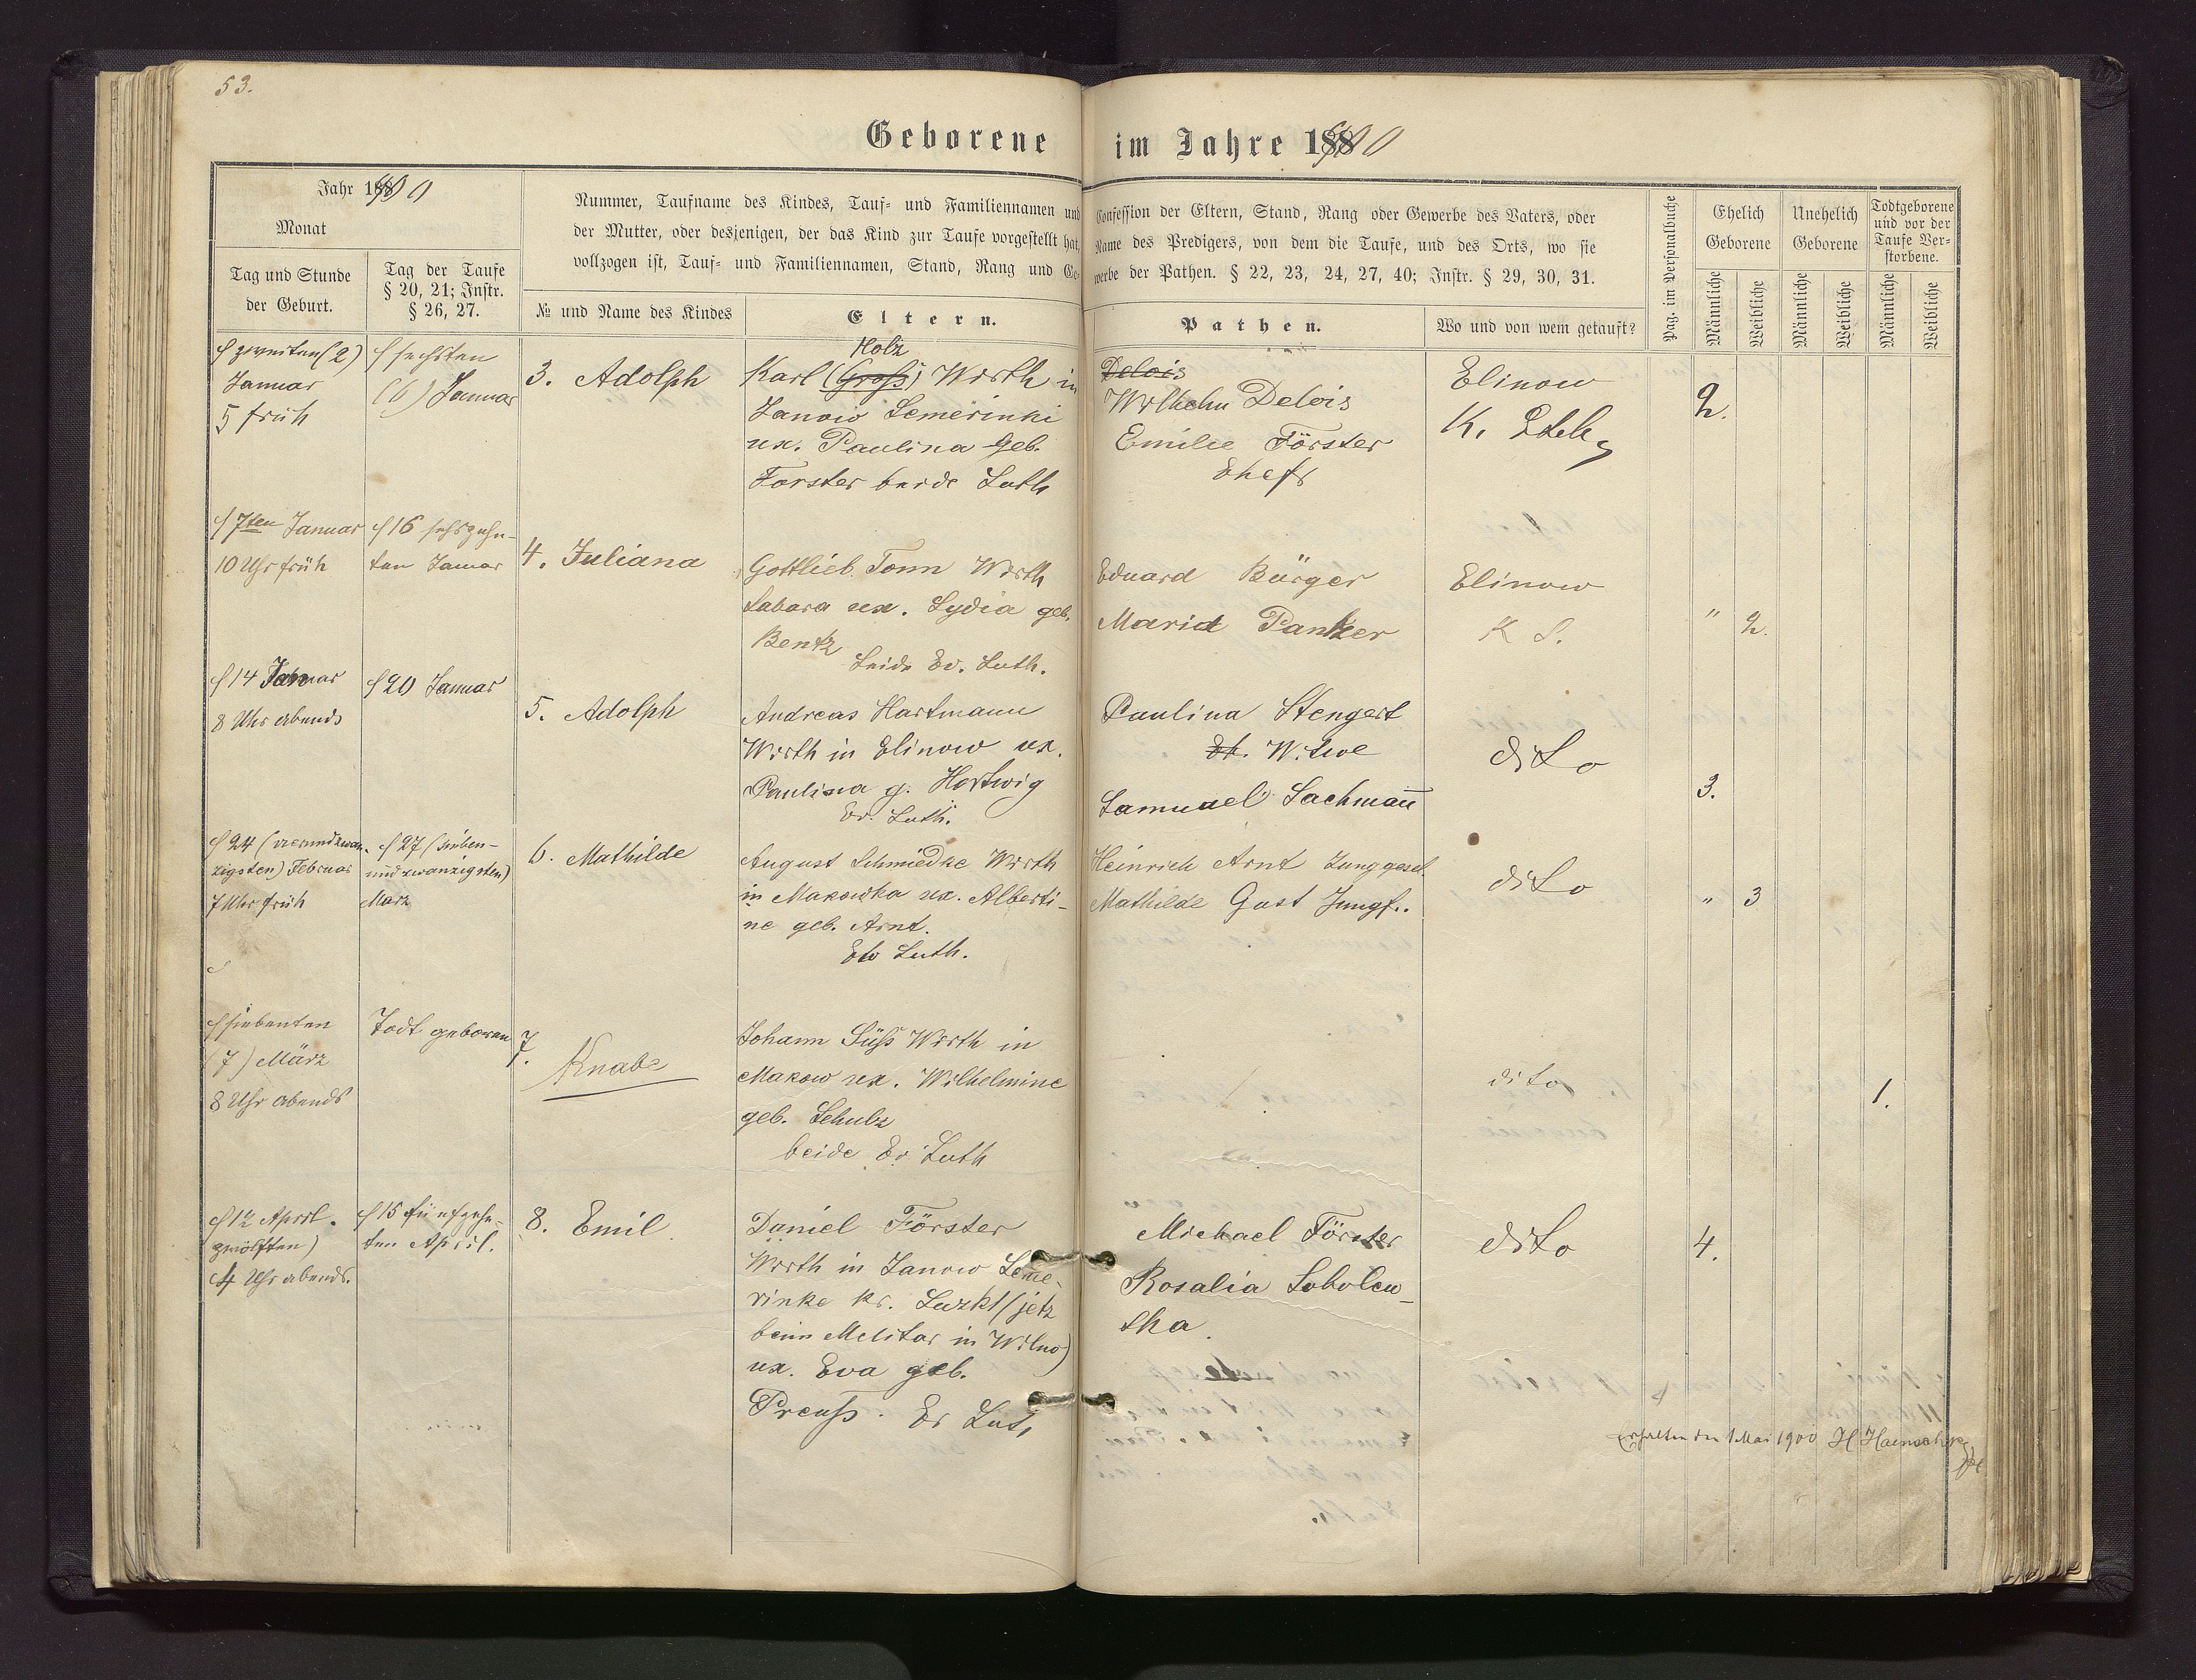 53.
Geborene im Jahre 1900
Jahr 1900
Monat
Tag und Stunde
der Geburt.
Tag der Taufe
§ 20, 21; Instr.
§ 26, 27.
Nummer, Taufname des Kindes, Tauf- und Familiennamen und
der Mutter, oder desjenigen, der das Kind zur Taufe vorgestellt hat,
vollzogen ist, Tauf- und Familiennamen, Stand, Rang und Ge-
№ und Name des Kindes
Eltern.
Confession der Eltern, Stand, Rang oder Gewerbe des Vaters, oder
Name des Predigers, von dem die Taufe, und des Orts, wo sie
werbe der Pathen. § 22, 23, 24, 27, 40; Instr. § 29, 30, 31.
Pathen.
Wo und von wem getauft?
Pag. im Personalbuche
Ehelich
Geborene
Unehelich
Geborene
Todtgeborene
und vor der
Taufe Ver-
storbene.
Männliche
Weibliche
Männliche
Weibliche
Männliche
Weibliche
zweiten (2)
Januar
5 früh
sechsten
(6) Januar
3. Adolph
Holz
Karl (Groß) Wirth in
Janow Semerinki
ux. Paulina geb.
Forster beide Luth
Delois
Wilhelm Delois
Emilie Förster
Ehefr
Elinow
K.
2.
7ten Januar
10 Uhr früh
16 sechszehn-
ten Januar
4. Juliana
Gottlieb Tonn Wirth
Sabara ux. Lydia geb.
Bentz
beide Ev. Luth.
Eduard Bürger
Maria Panker
Elinow
K S.
" 2.
14 Januar
8 Uhr abends
20 Januar
5. Adolph
Andreas Hartmann
Wirth in Elinow ux.
Paulina g. Hartwig
Ev. Luth.
Paulina Stengert
Eh. Witwe
Samuael Lachman̄
dito
3.
24 (vierundzwan-
zigsten) Februar
7 Uhr früh
27 (sieben-
undzwanzigsten)
März
6. Mathilde
August Schmiedke Wirth
in Makowka ux. Alberti-
ne geb. Arnt.
Ev Luth.
Heinrich Arnt Junggesel.
Mathilde Gust Jungf..
dito
" 3
siebenten
(7) März
8 Uhr abends
Todt geboren
7.
Knabe
Johann Süß Wirth in
Makow ux. Wilhelmine
geb. Schulz
beide Ev Luth
dito
1.
12 April.
zwölften)
4 Uhr abends.
15 fünfzehn-
ten April.
8. Emil
Daniel Förster
Wirth in Janow Seme-
rinke kr. Luzk (jetz
beim Militar in Wilno)
ux. Eva geb.
Preuß. Ev Luth
Michael Förster
Rosalia Sobolew-
ska.
dito
4.
Erhalten den 1 Mai 1900 H